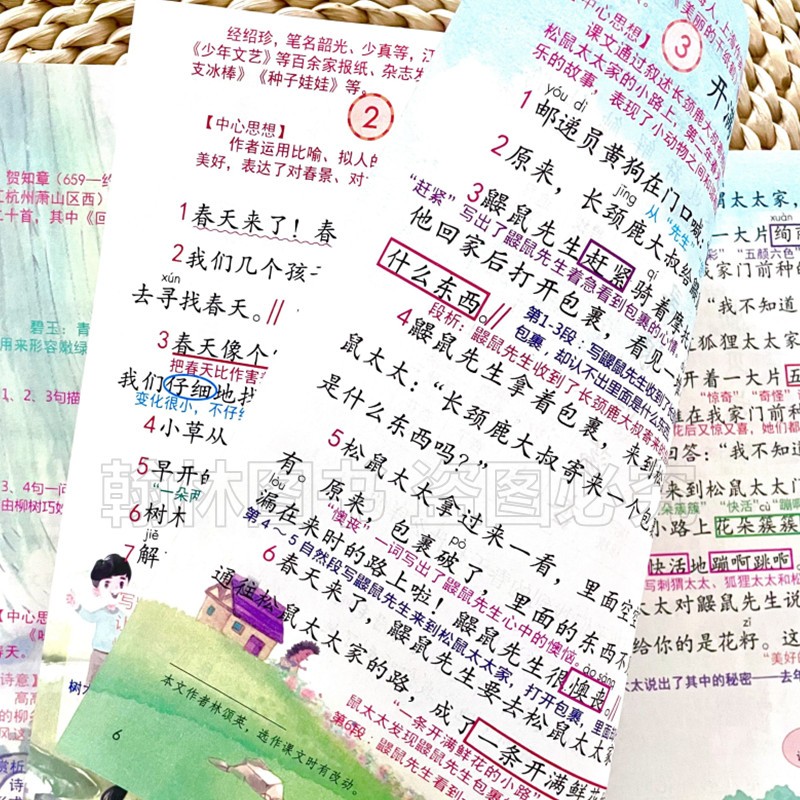 贺知章（659—约
江杭州萧山区西）
二十首，其中《回
碧玉：青
用来形容嫩绿
1、2、3句描
3、4句一问
由柳树巧妙
【中心思
《咏
春天。
诗意】
高高
的柳
赏析
诗
经绍珍，笔名韶光、少真等，江
《少年文艺》等百余家报纸、杂志发
支冰棒》《种子娃娃》等。
2
【中心思想】
作者运用比喻、拟人的
美好，表达了对春景、对
1 春天来了！春
2 我们几个孩子
xún
去寻找春天。//
3 春天像个
把春天比作害
我们仔细地找
变化很小，不仔细
4 小草从
5 早开的
“一朵两
6 树木
jiě
7 解
写
树
3
中心思想】
课文通过叙述长颈鹿大叔
松鼠太太家的小路上，第二年春
乐的故事，表现了小动物之间和
开满
yóu dì
1 邮递员黄狗在门口喊：
从“先生”
jǐng
2 原来，长颈鹿大叔给鼹
3 鼹鼠先生赶紧骑着摩
qí
“赶紧”写出了鼹鼠先生着急看到包裹的心情
他回家后打开包裹，看见一
什么东西。//
第1-3段：写鼹鼠先生收到了
包裹，却认不出里面是什么东西
段析：鼹鼠先生收到了长颈鹿大叔寄来的
4 鼹鼠先生拿着包裹，来到松
鼠太太：“长颈鹿大叔寄来一个包
是什么东西吗？”
5 松鼠太太拿过来一看，里面空空
有。原来，包裹破了，里面的东西不
lòu
pò
漏在来时的路上啦！鼹鼠先生很懊丧。
ào sàng
“懊丧”一词写出了鼹鼠先生心中的懊恼。
第4～5自然段写鼹鼠先生来到松鼠太太家，打开包裹，里面
6 春天来了，鼹鼠先生要去松鼠太太
通往松鼠太太家的路，成了一条开满鲜花
“一条开满鲜花的小路”
鼠太太发现鼹鼠先生包裹
第6段：鼹鼠先生看到
本文作者林颂英，选作课文时有改动。
6
猬太太家，
xuàn
一大片绚
“五颜六色”
我家门前种的
“我不知道
狐狸太太
开着一大片五
“惊奇” “奇怪”
谁在我家门前种
花后又惊又喜，她们都
回答：“我不知道
来到松鼠太太门
“快活” cù“蹦
小路上花朵簇簇
快活地蹦啊跳啊。
写刺猬太太、狐狸太太和松
太对鼹鼠先生说
zǐ
给你的是花籽。这
“美好的
太说出了其中的秘密——去年
翰林图书 盗图必究